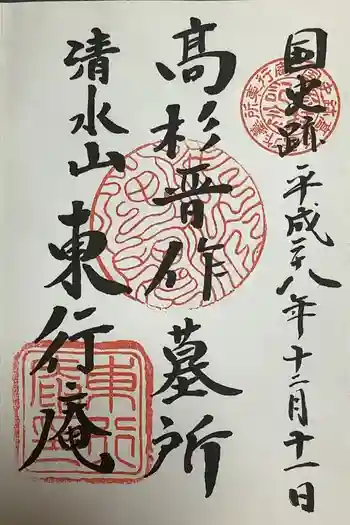 国史跡 平成二八年十二月十一日
髙杉晋作墓所
清水山 東行庵